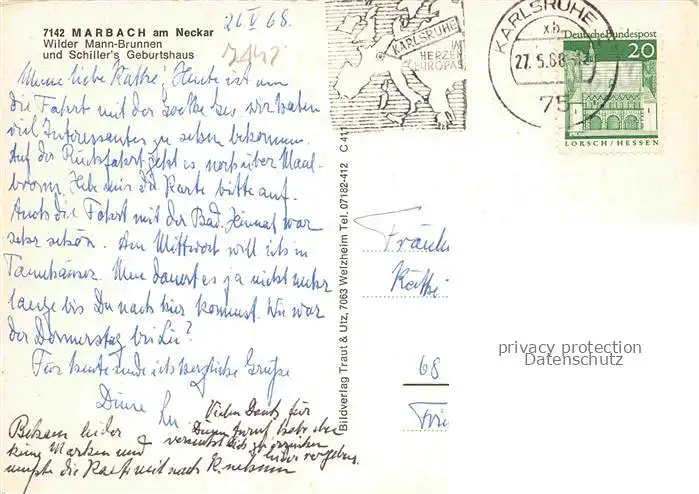 7142 MARBACH am Neckar
Wilder Mann-Brunnen
und Schiller's Geburtshaus
26 V 68.
Meine liebe Käthe, Heute ist nun
die Fahrt mit der
viel Interessantes zu sehen bekommen.
Auf der Rückfahrt geht es noch über Maul-
bronn. Hebe mir die Karte bitte auf.
Auch die Fahrt mit der Bad. Heimat war
sehr schön. Am Mittwoch will ich in
Tannhäuser. Nun dauert es ja nicht mehr
lange bis Du nach hier kommst. Wie war
der Donnerstag bei
Für heute sende ich herzliche Grüße
Deine
Vielen Dank für
Deinen Anruf habe aber
vergebens.
Bekam leider
keine Marken und
mußte die Karte mit nach K. nehmen
Bildverlag Traut & Utz, 7063 Welzheim Tel. 07182-412 C 411
KARLSRUHE
IM
HERZEN
EUROPAS
KARLSRUHE
xb
27.5.68
75
Deutsche Bundespost
20
LORSCH / HESSEN
Fräule
Käthe
68
privacy protection
Datenschutz